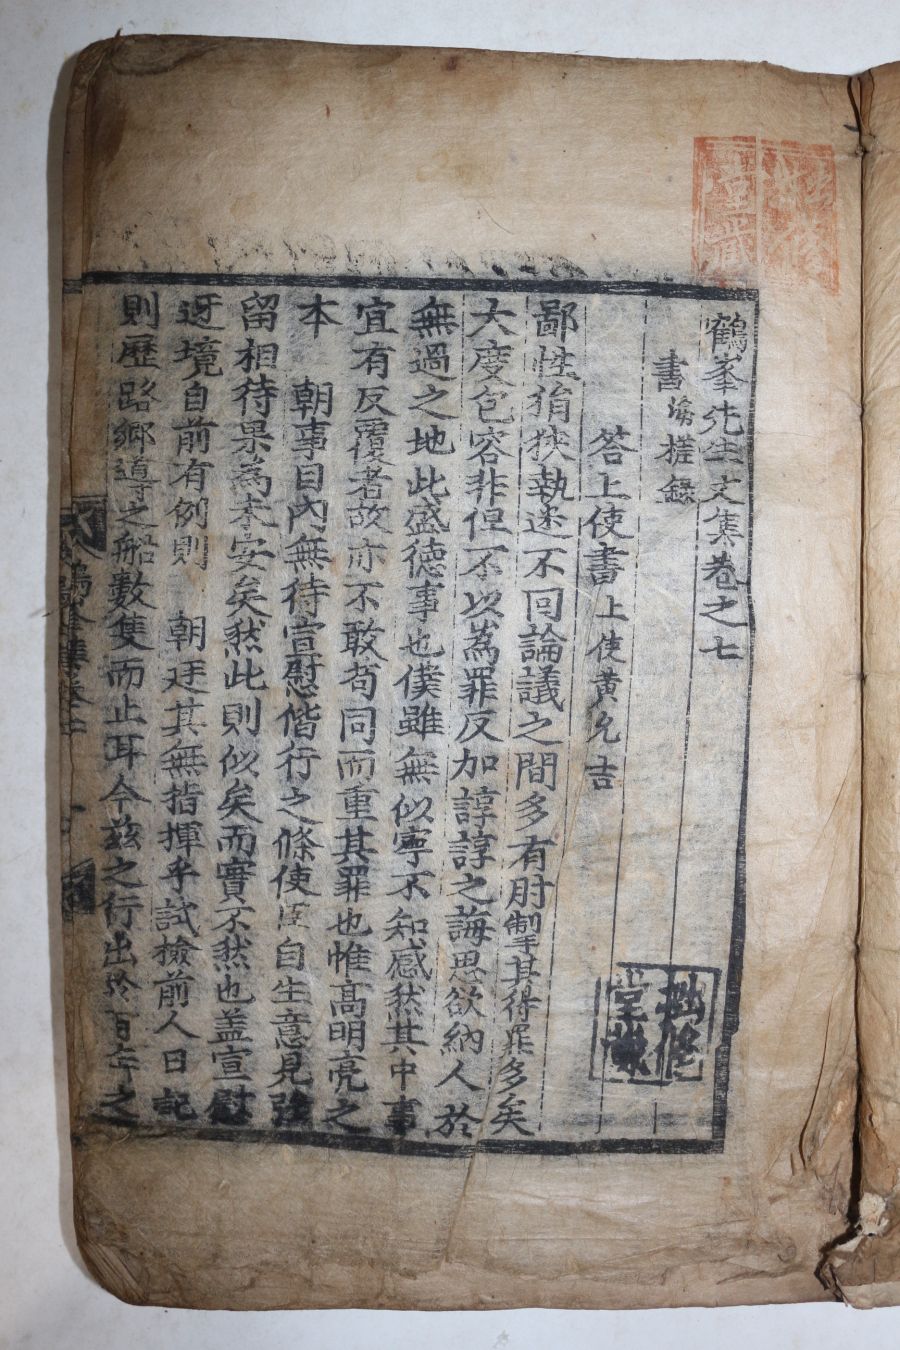 鶴峯先生文集卷之七
書海槎錄
答上使書上使黃允吉
鄙性狷狹執迷不回論議之間多有肘掣其得罪多矣
大度包容非但不以爲罪反加諄諄之誨思欲納人於
無過之地此盛德事也僕雖無似寧不知感然其中事
宜有反覆者故亦不敢苟同而重其罪也惟高明亮之
本 朝事目內無待宣慰偕行之條使臣自生意見強
留相待果爲未安矣然此則似矣而實不然也盖宣慰
迓境自前有例則 朝廷其無指揮乎試檢前人日記
則歷路鄕導之船數隻而止耳今玆之行出於百年之
鶴峯集卷七
拙修
堂藏
堂藏